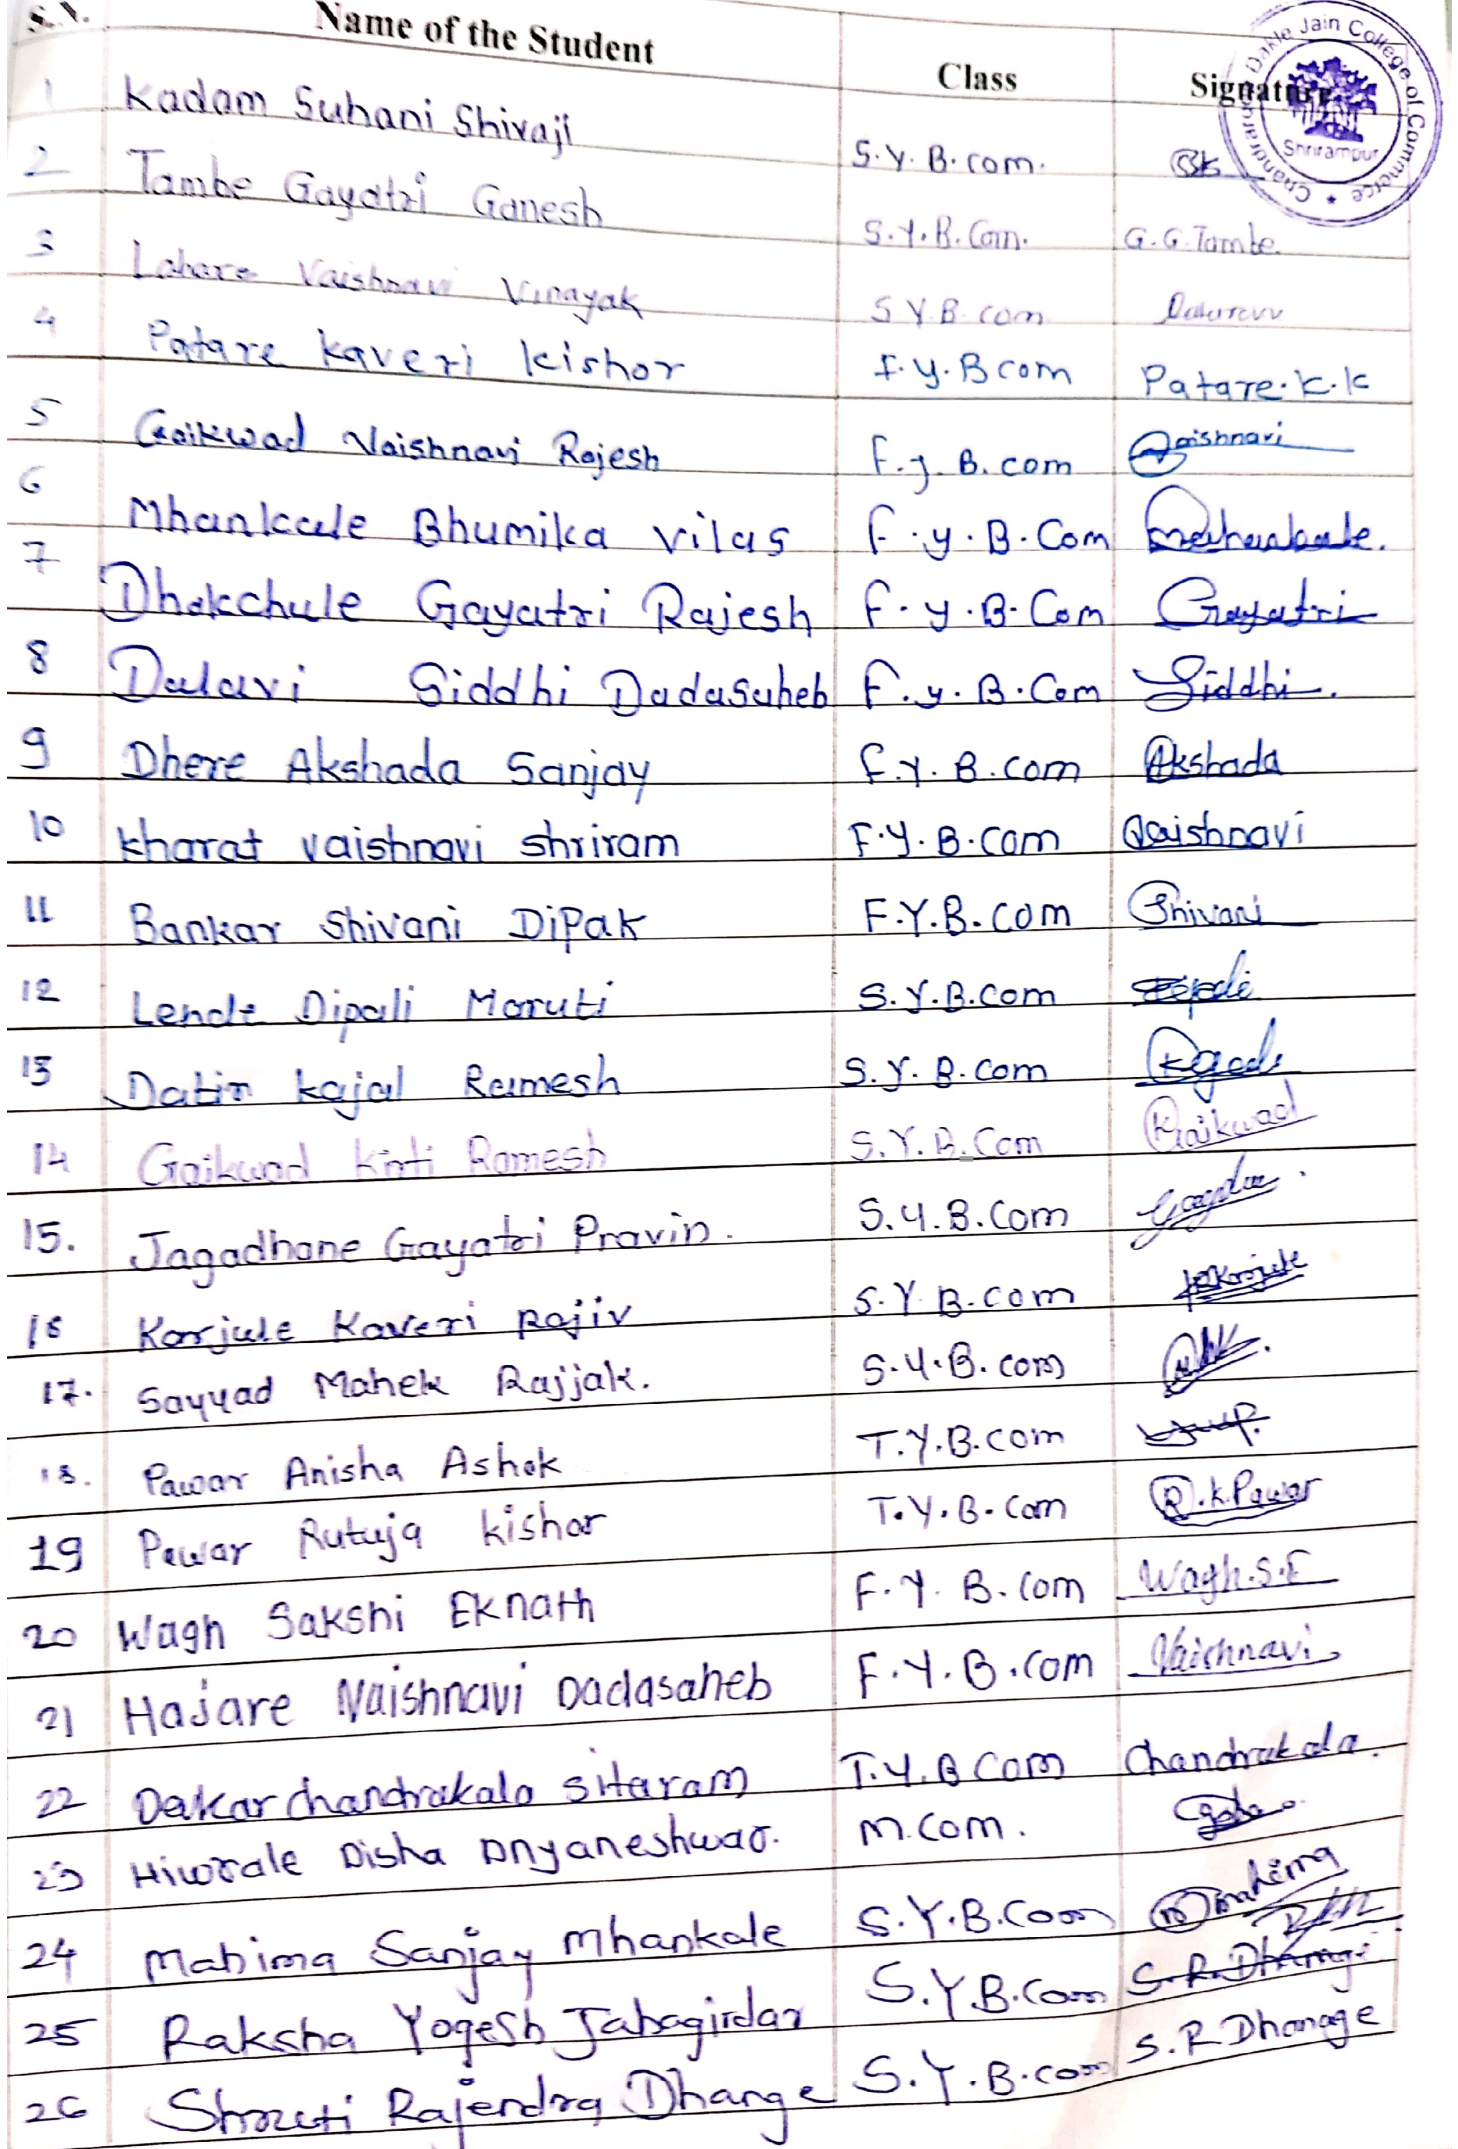 S.N. Name of the Student Class Signature
Chandraroop Dakle Jain College of Commerce
Shrirampur
1 Kadam Suhani Shivaji S.Y.B.com.
2 Tambe Gayatri Ganesh S.Y.B.Com. G.G.Tambe
3 Lahare Vaishnavi Vinayak S.Y.B.com
4 Patare kaveri kishor F.y.Bcom Patare.k.k
5 Gaikwad Vaishnavi Rajesh F.y.B.com Vaishnavi
6 Mhankale Bhumika vilas F.y.B.Com
7 Dhokchule Gayatri Rajesh F.y.B.Com Gayatri
8 Dalavi Siddhi Dadasaheb F.y.B.Com Siddhi
9 Dhere Akshada Sanjay F.Y.B.com Akshada
10 kharat vaishnavi shriram F.Y.B.com Vaishnavi
11 Bankar Shivani Dipak F.Y.B.com Shivani
12 Lende Dipali Maruti S.Y.B.com
13 Datir kajal Ramesh S.y.B.com
14 Gaikwad Kirti Ramesh S.Y.B.Com Gaikwad
15. Jagadhane Gayatri Pravin. S.Y.B.Com
16 Karjule Kaveri Rajiv S.Y B.com
17. Sayyad Mahek Rajjak. S.Y.B.com
18. Pawar Anisha Ashok T.Y.B.com
19 Pawar Rutuja kishor T.Y.B.com R.K.Pawar
20 Wagh Sakshi Eknath F.Y.B.com Wagh.S.E
21 Hajare Vaishnavi Dadasaheb F.Y.B.com Vaishnavi
22 Dakar chandrakala sitaram T.Y.B Com Chandrakala.
23 Hiwrale Disha Dnyaneshwar. M.com.
24 Mahima Sanjay Mhankale S.Y.B.Com Mahima
25 Raksha Yogesh Jahagirdar S.Y.B.Com
26 Shruti Rajendra Dhange S.Y.B.com S.R Dhanage